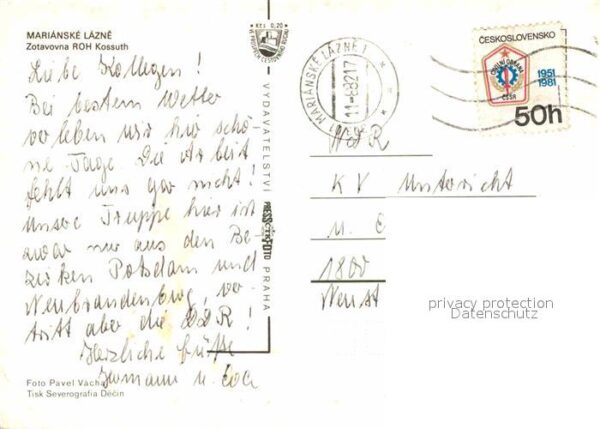 MARIÁNSKÉ LÁZNĚ
Zotavovna ROH Kossuth
Liebe Kollegen!
Bei bestem Wetter
verleben wir hier schö-
ne Tage. Die Arbeit
fehlt uns gar nicht!
Unsere Truppe hier ist
zwar nur aus den Be-
zirken Potsdam und
Neubrandenburg, ver-
tritt aber die DDR!
Herzliche Grüße
Hermann u.
Foto Pavel Vácha
Tisk Severografia Děčín
Kčs 0,20
VYDAVATELSTVÍ
PRESSFOTO
PRAHA
MARIÁNSKÉ LÁZNĚ 1
ČESKOSLOVENSKO
CIVILNÍ OBRANA
ČSSR
1951
1981
50h
DDR
KV Unterricht
1800
privacy protection
Datenschutz